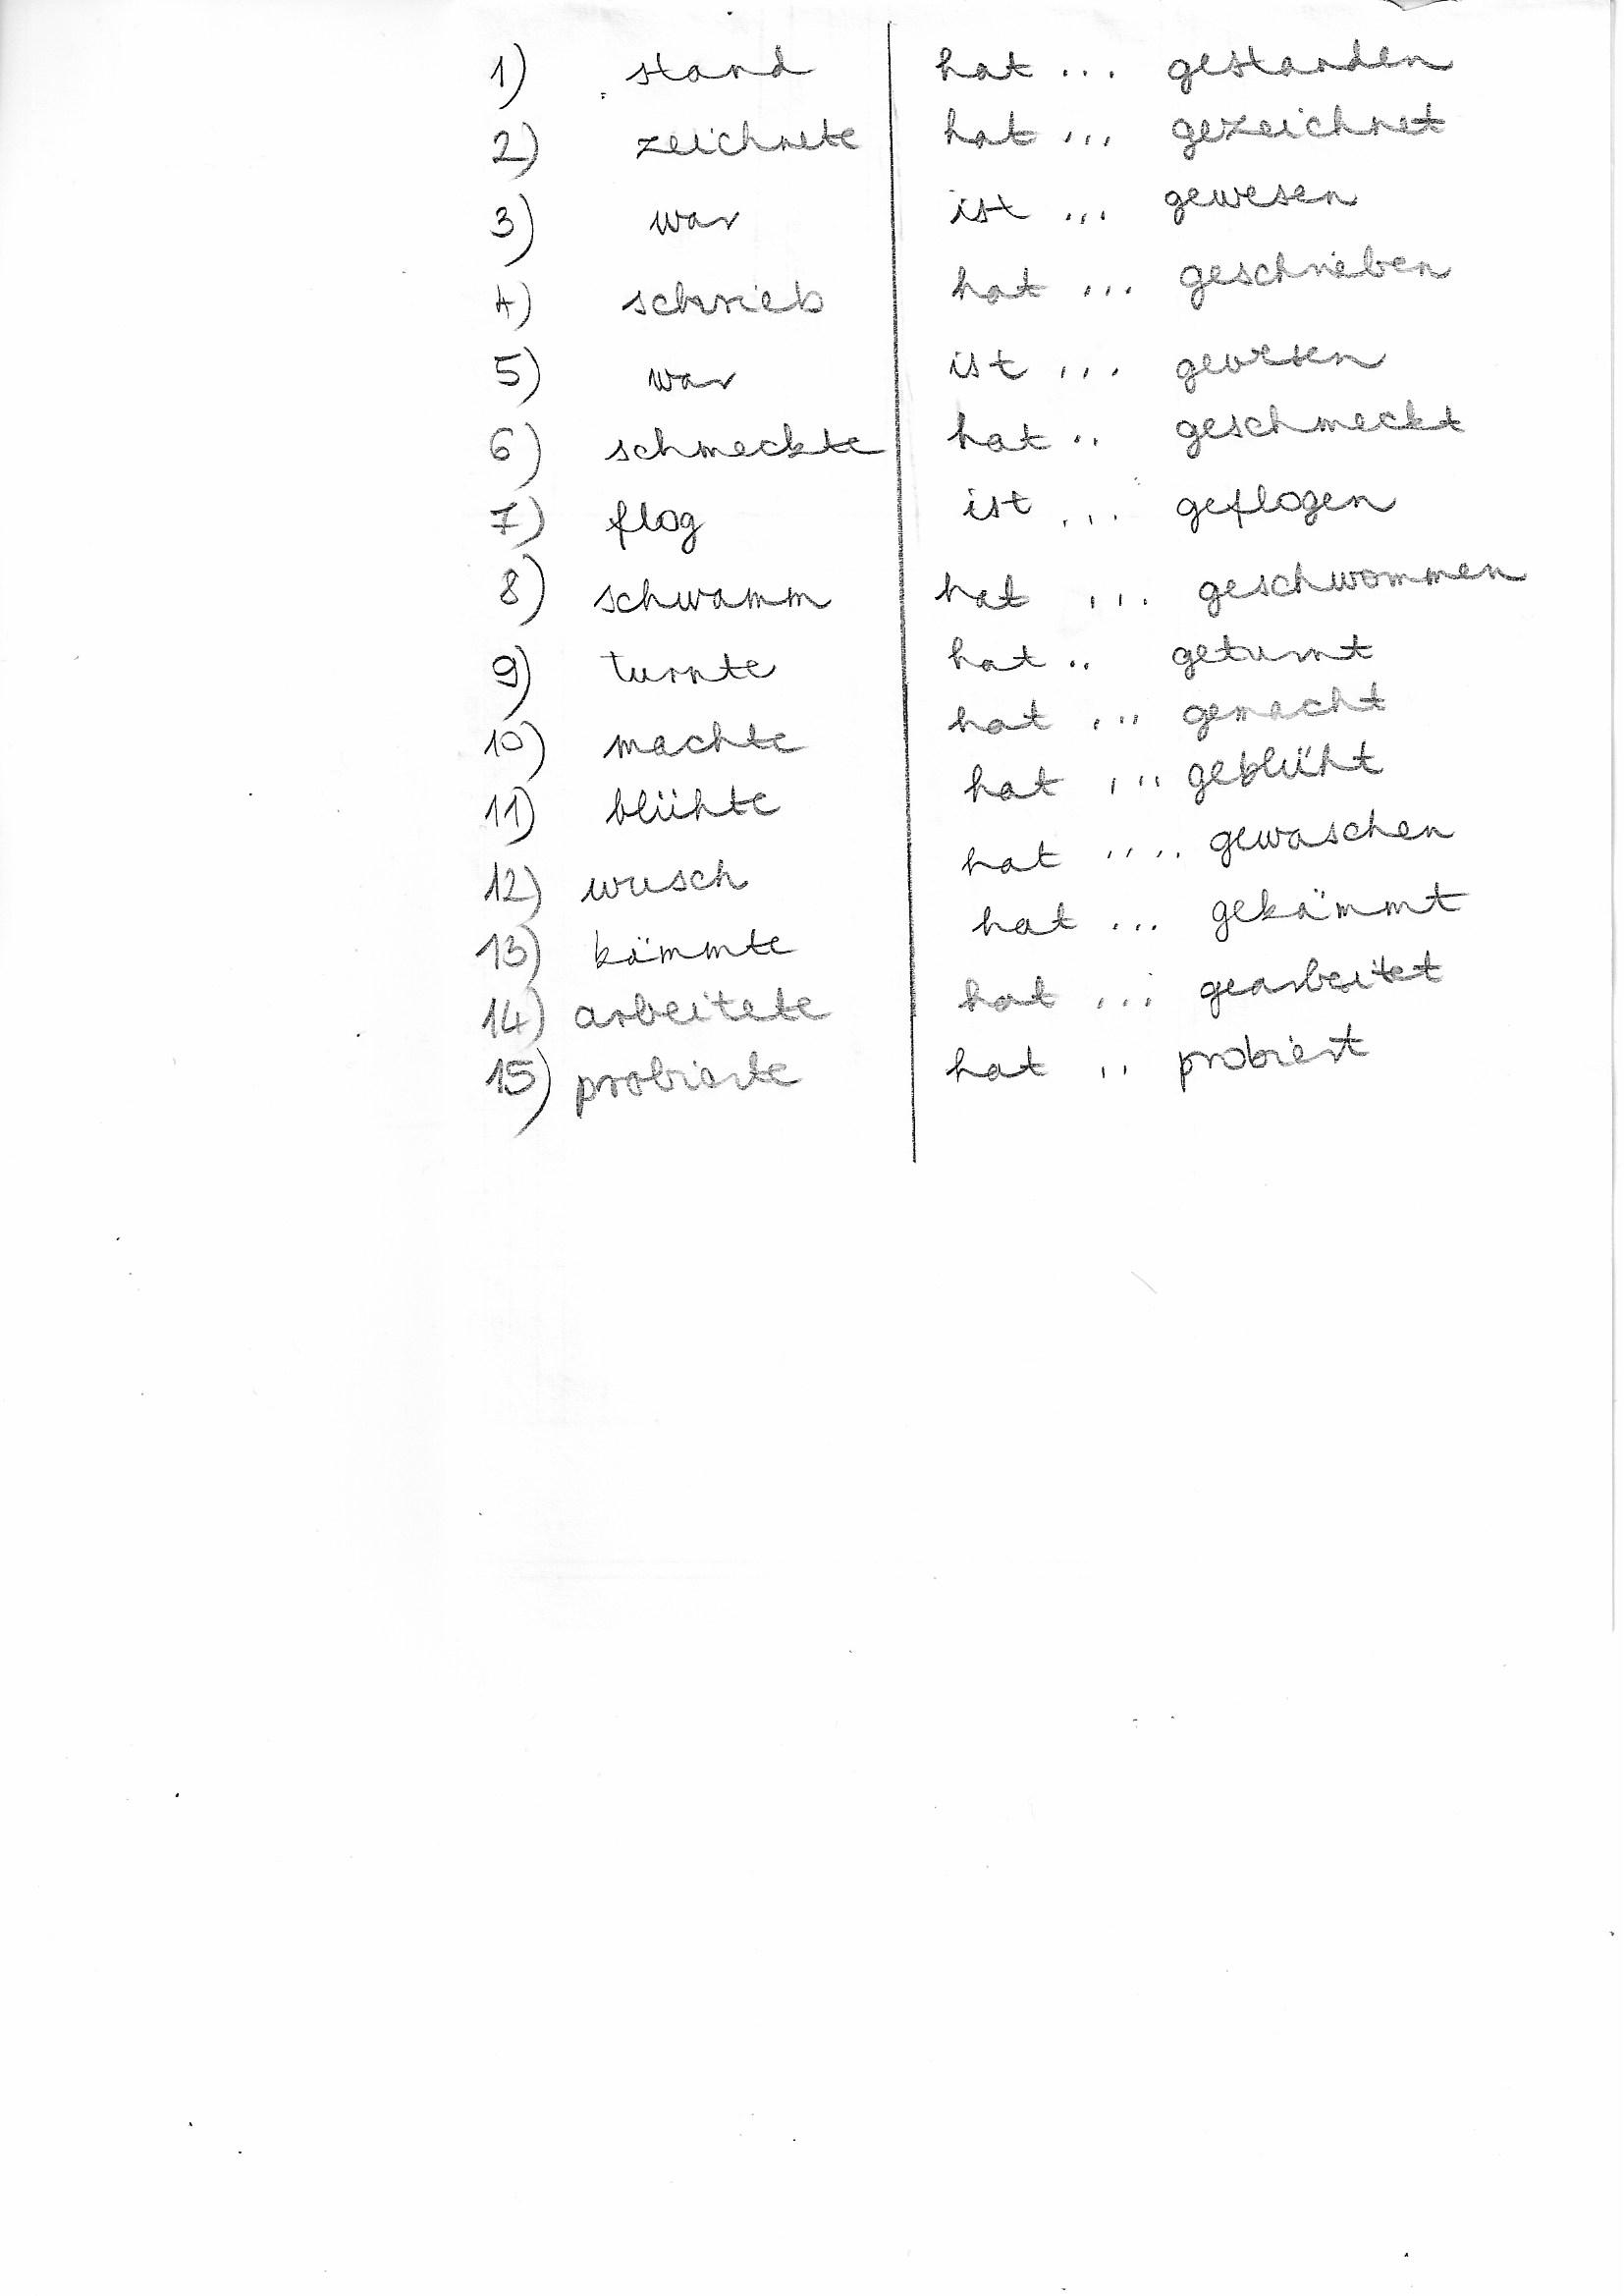 1) stand hat ... gestanden
2) zeichnete hat ... gezeichnet
3) war ist ... gewesen
4) schrieb hat ... geschrieben
5) war ist ... gewesen
6) schmeckte hat .. geschmeckt
7) flog ist ... geflogen
8) schwamm hat ... geschwommen
9) turnte hat .. geturnt
10) machte hat ... gemacht
11) blühte hat ... geblüht
12) wusch hat .... gewaschen
13) kämmte hat ... gekämmt
14) arbeitete hat ... gearbeitet
15) probierte hat .. probiert